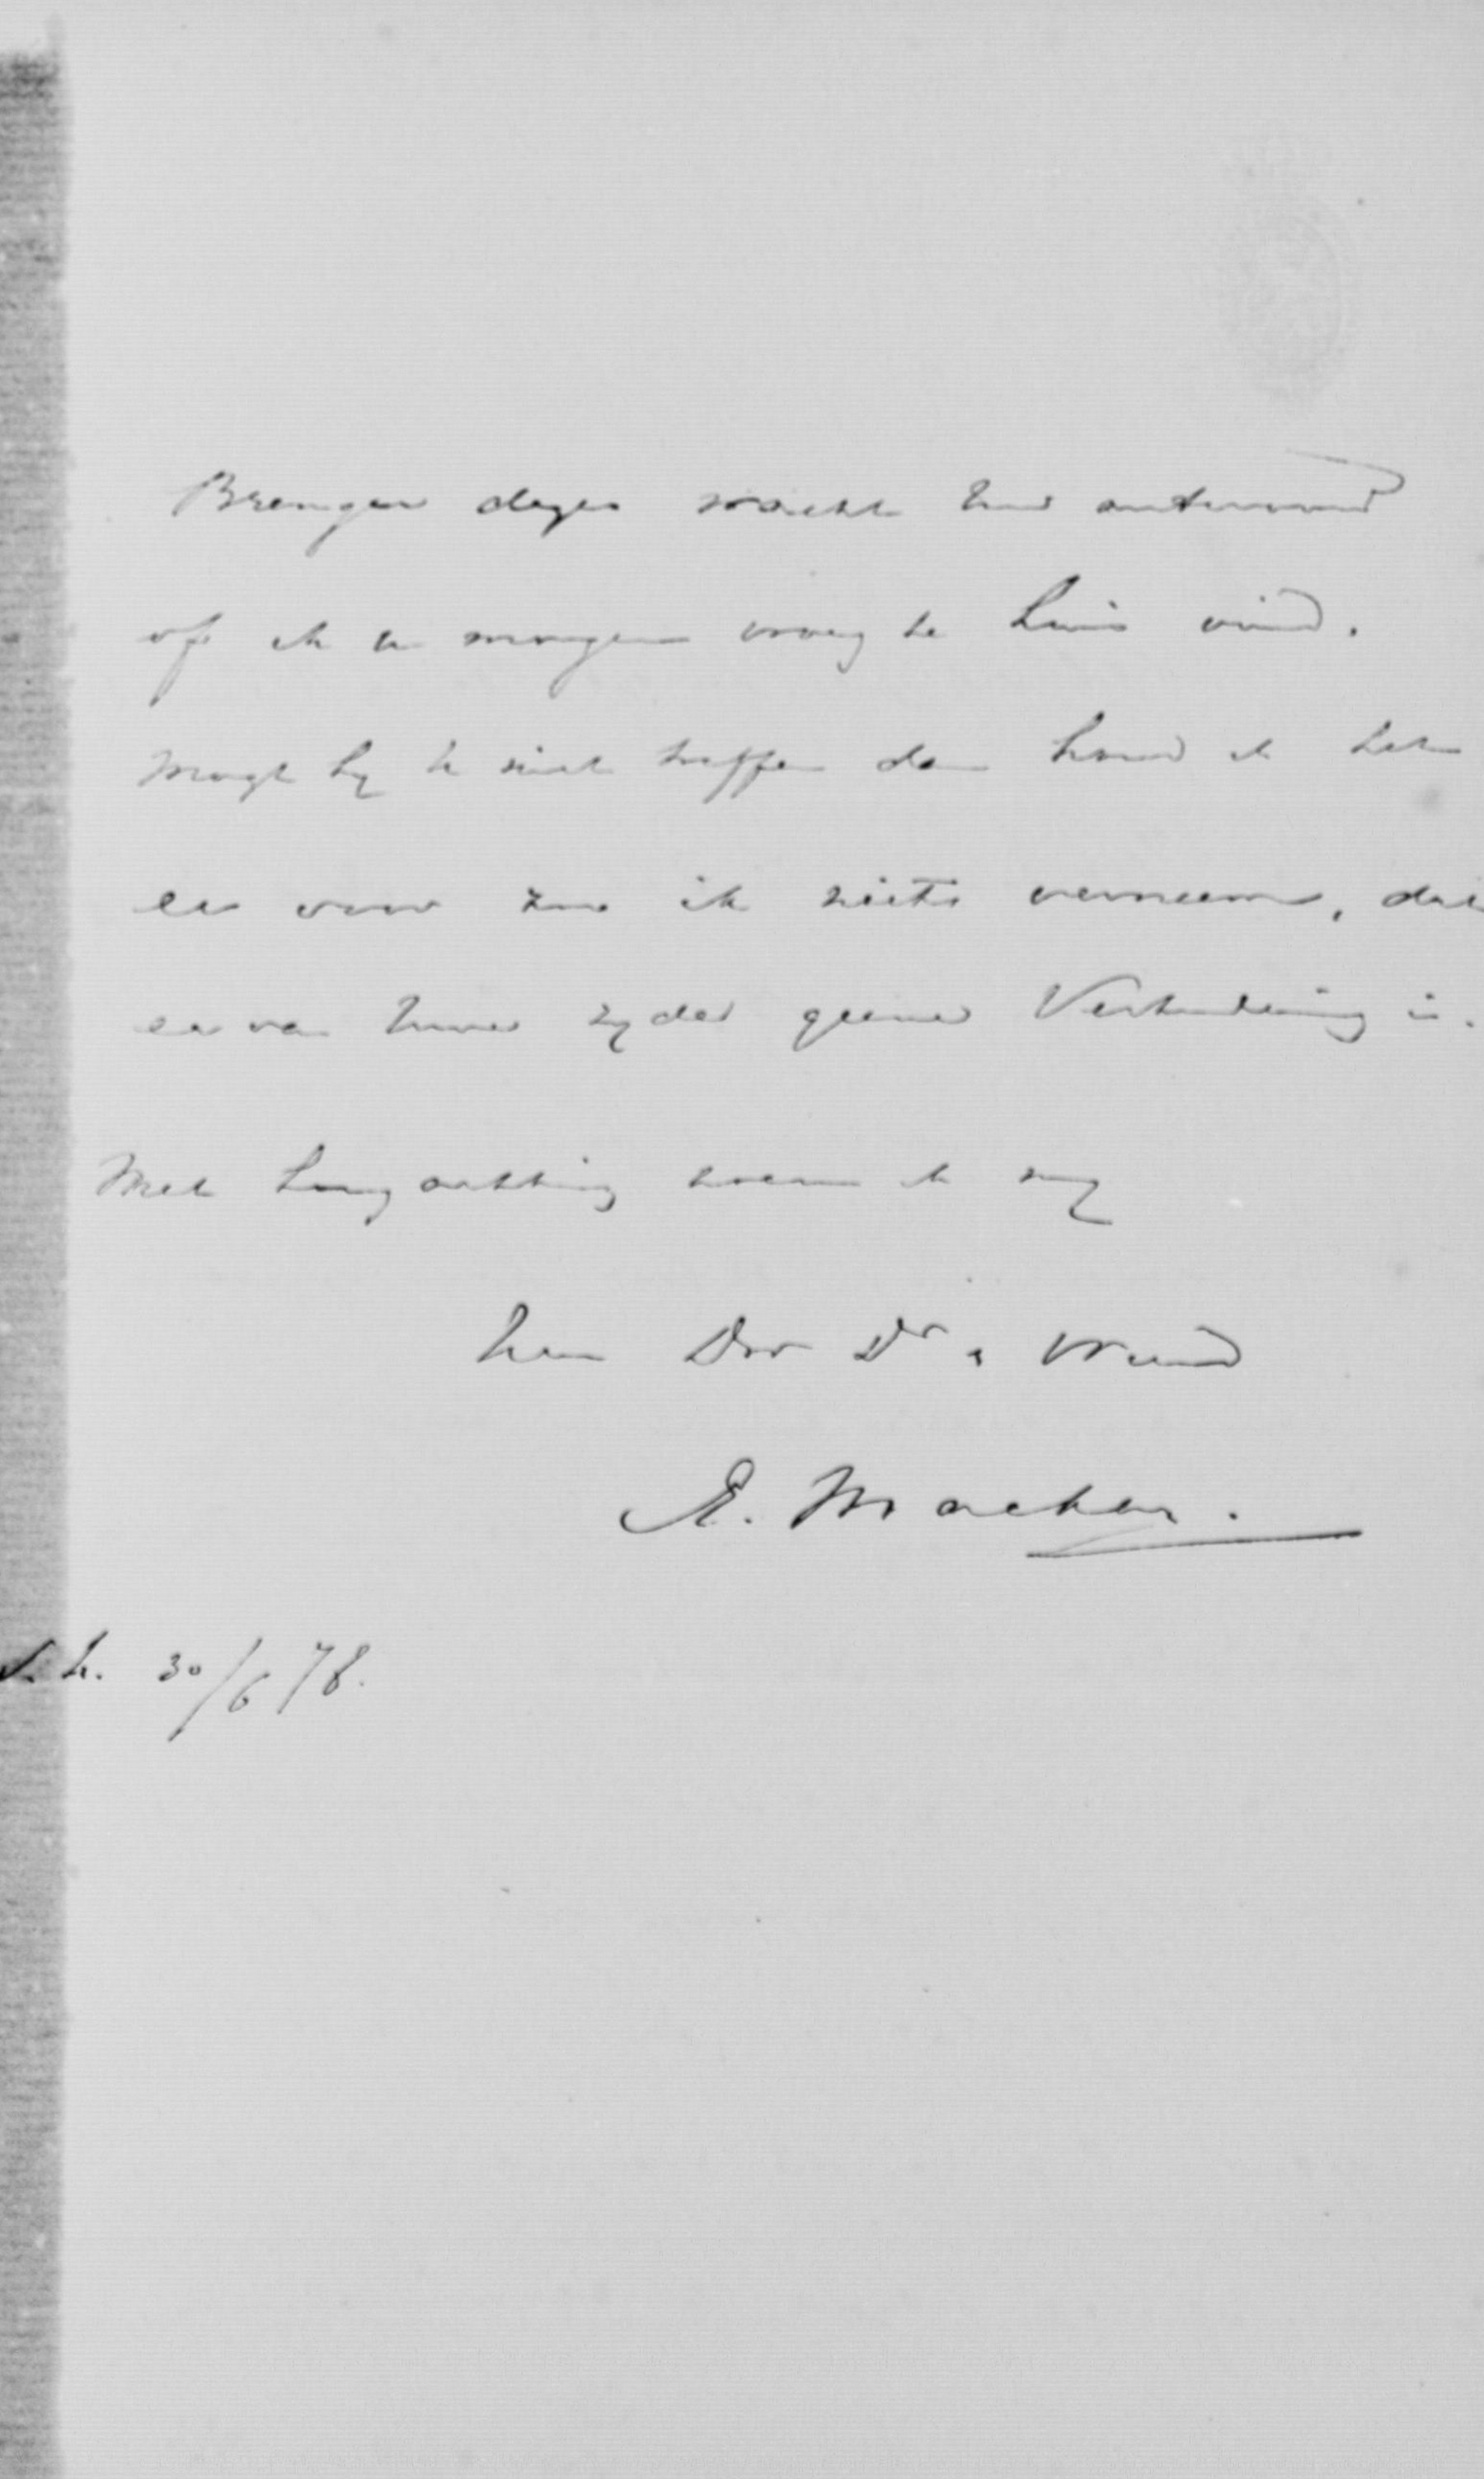 Brenger dezes wacht Uw antwoord
of ik U morgen vroeg te huis vind.
Mogt hij U niet treffen dan houd ik het
er voor zoo ik niets verneem, dat
er van Uwer zijder geene Verhindering is.
Met hoogachting noem ik mij
Uw Dw Dr & Vriend
E. Macken.
30/6 78.